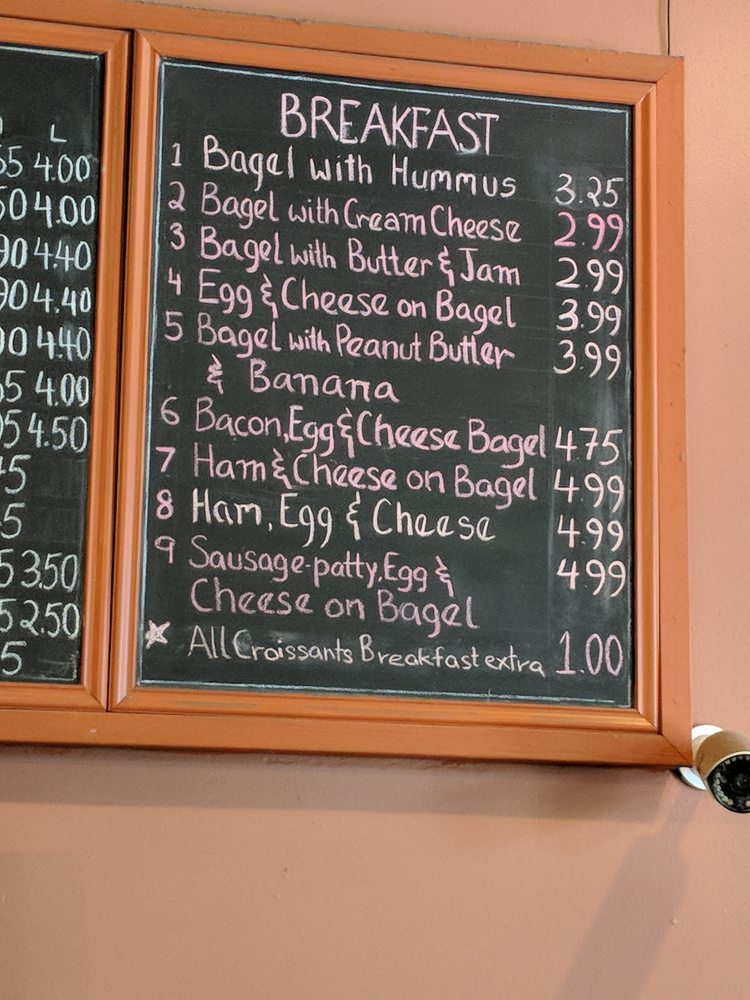 L
5 4.00
50 4.00
90 4.40
90 4.40
90 4.40
5 4.00
5 4.50
5
5
5 3.50
5 2.50
5
BREAKFAST
1 Bagel with Hummus 3.25
2 Bagel with Cream Cheese 2.99
3 Bagel with Butter & Jam 2.99
4 Egg & Cheese on Bagel 3.99
5 Bagel with Peanut Butter 3.99
& Banana
6 Bacon, Egg & Cheese Bagel 4.75
7 Ham & Cheese on Bagel 4.99
8 Ham, Egg & Cheese 4.99
9 Sausage-patty, Egg & 4.99
Cheese on Bagel
All Croissants Breakfast extra 1.00